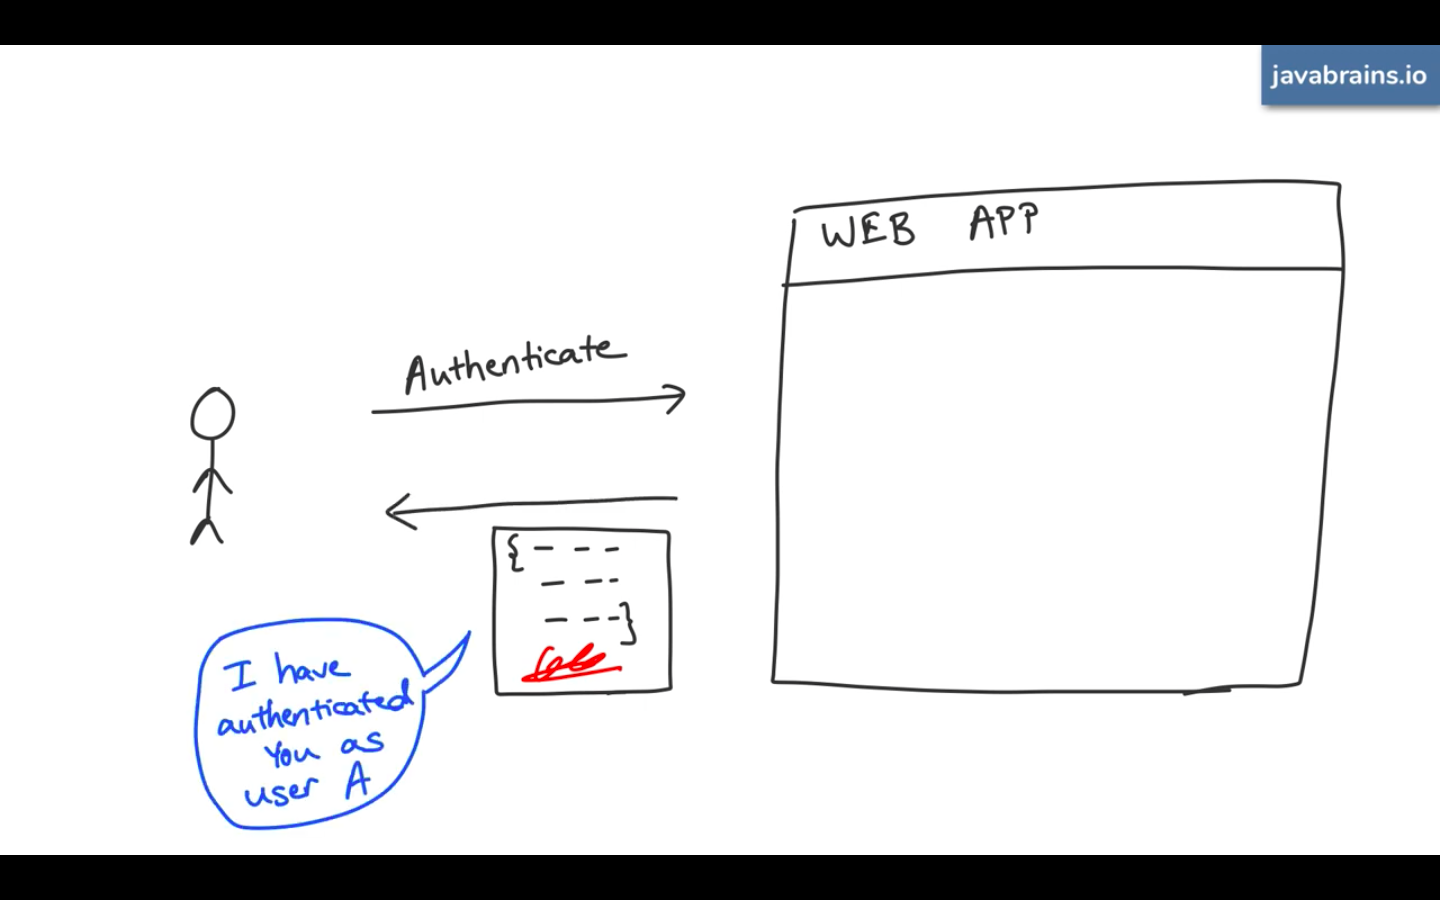 javabrains.io
WEB APP
Authenticate
{ - - -
- - -
- - - }
I have
authenticated
you as
user A